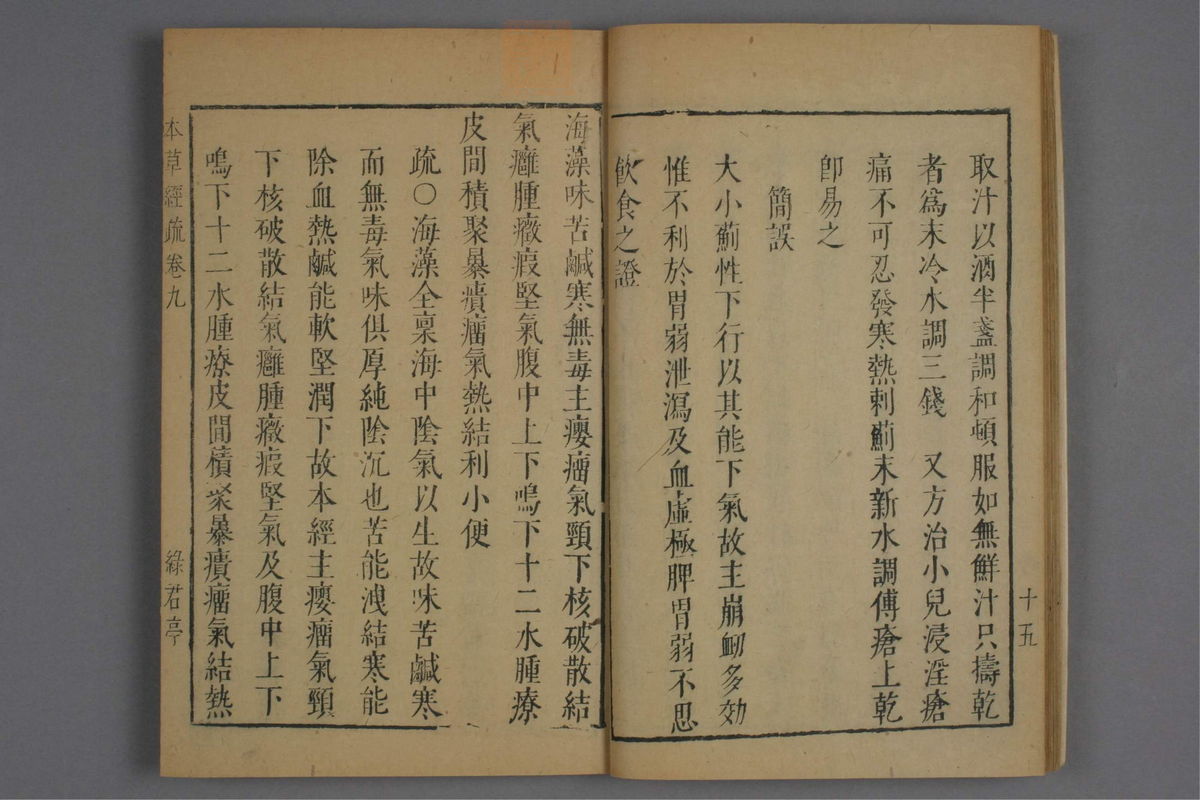 取汁以酒半盞調和頓服如無鮮汁只擣乾
者爲末冷水調三錢 又方治小兒浸淫瘡
痛不可忍發寒熱刺薊末新水調傅瘡上乾
卽易之
簡誤
大小薊性下行以其能下氣故主崩衂多効
惟不利於胃弱泄瀉及血虛極脾胃弱不思
飮食之證
十五
海藻味苦鹹寒無毒主癭瘤氣頸下核破散結
氣癰腫癥瘕堅氣腹中上下鳴下十二水腫療
皮間積聚暴㿉瘤氣熱結利小便
疏○海藻全稟海中陰氣以生故味苦鹹寒
而無毒氣味俱厚純陰沉也苦能洩結寒能
除血熱鹹能軟堅潤下故本經主癭瘤氣頸
下核破散結氣癰腫癥瘕堅氣及腹中上下
鳴下十二水腫療皮間積聚暴㿉瘤氣結熱
本草經疏 卷九 綠君亭